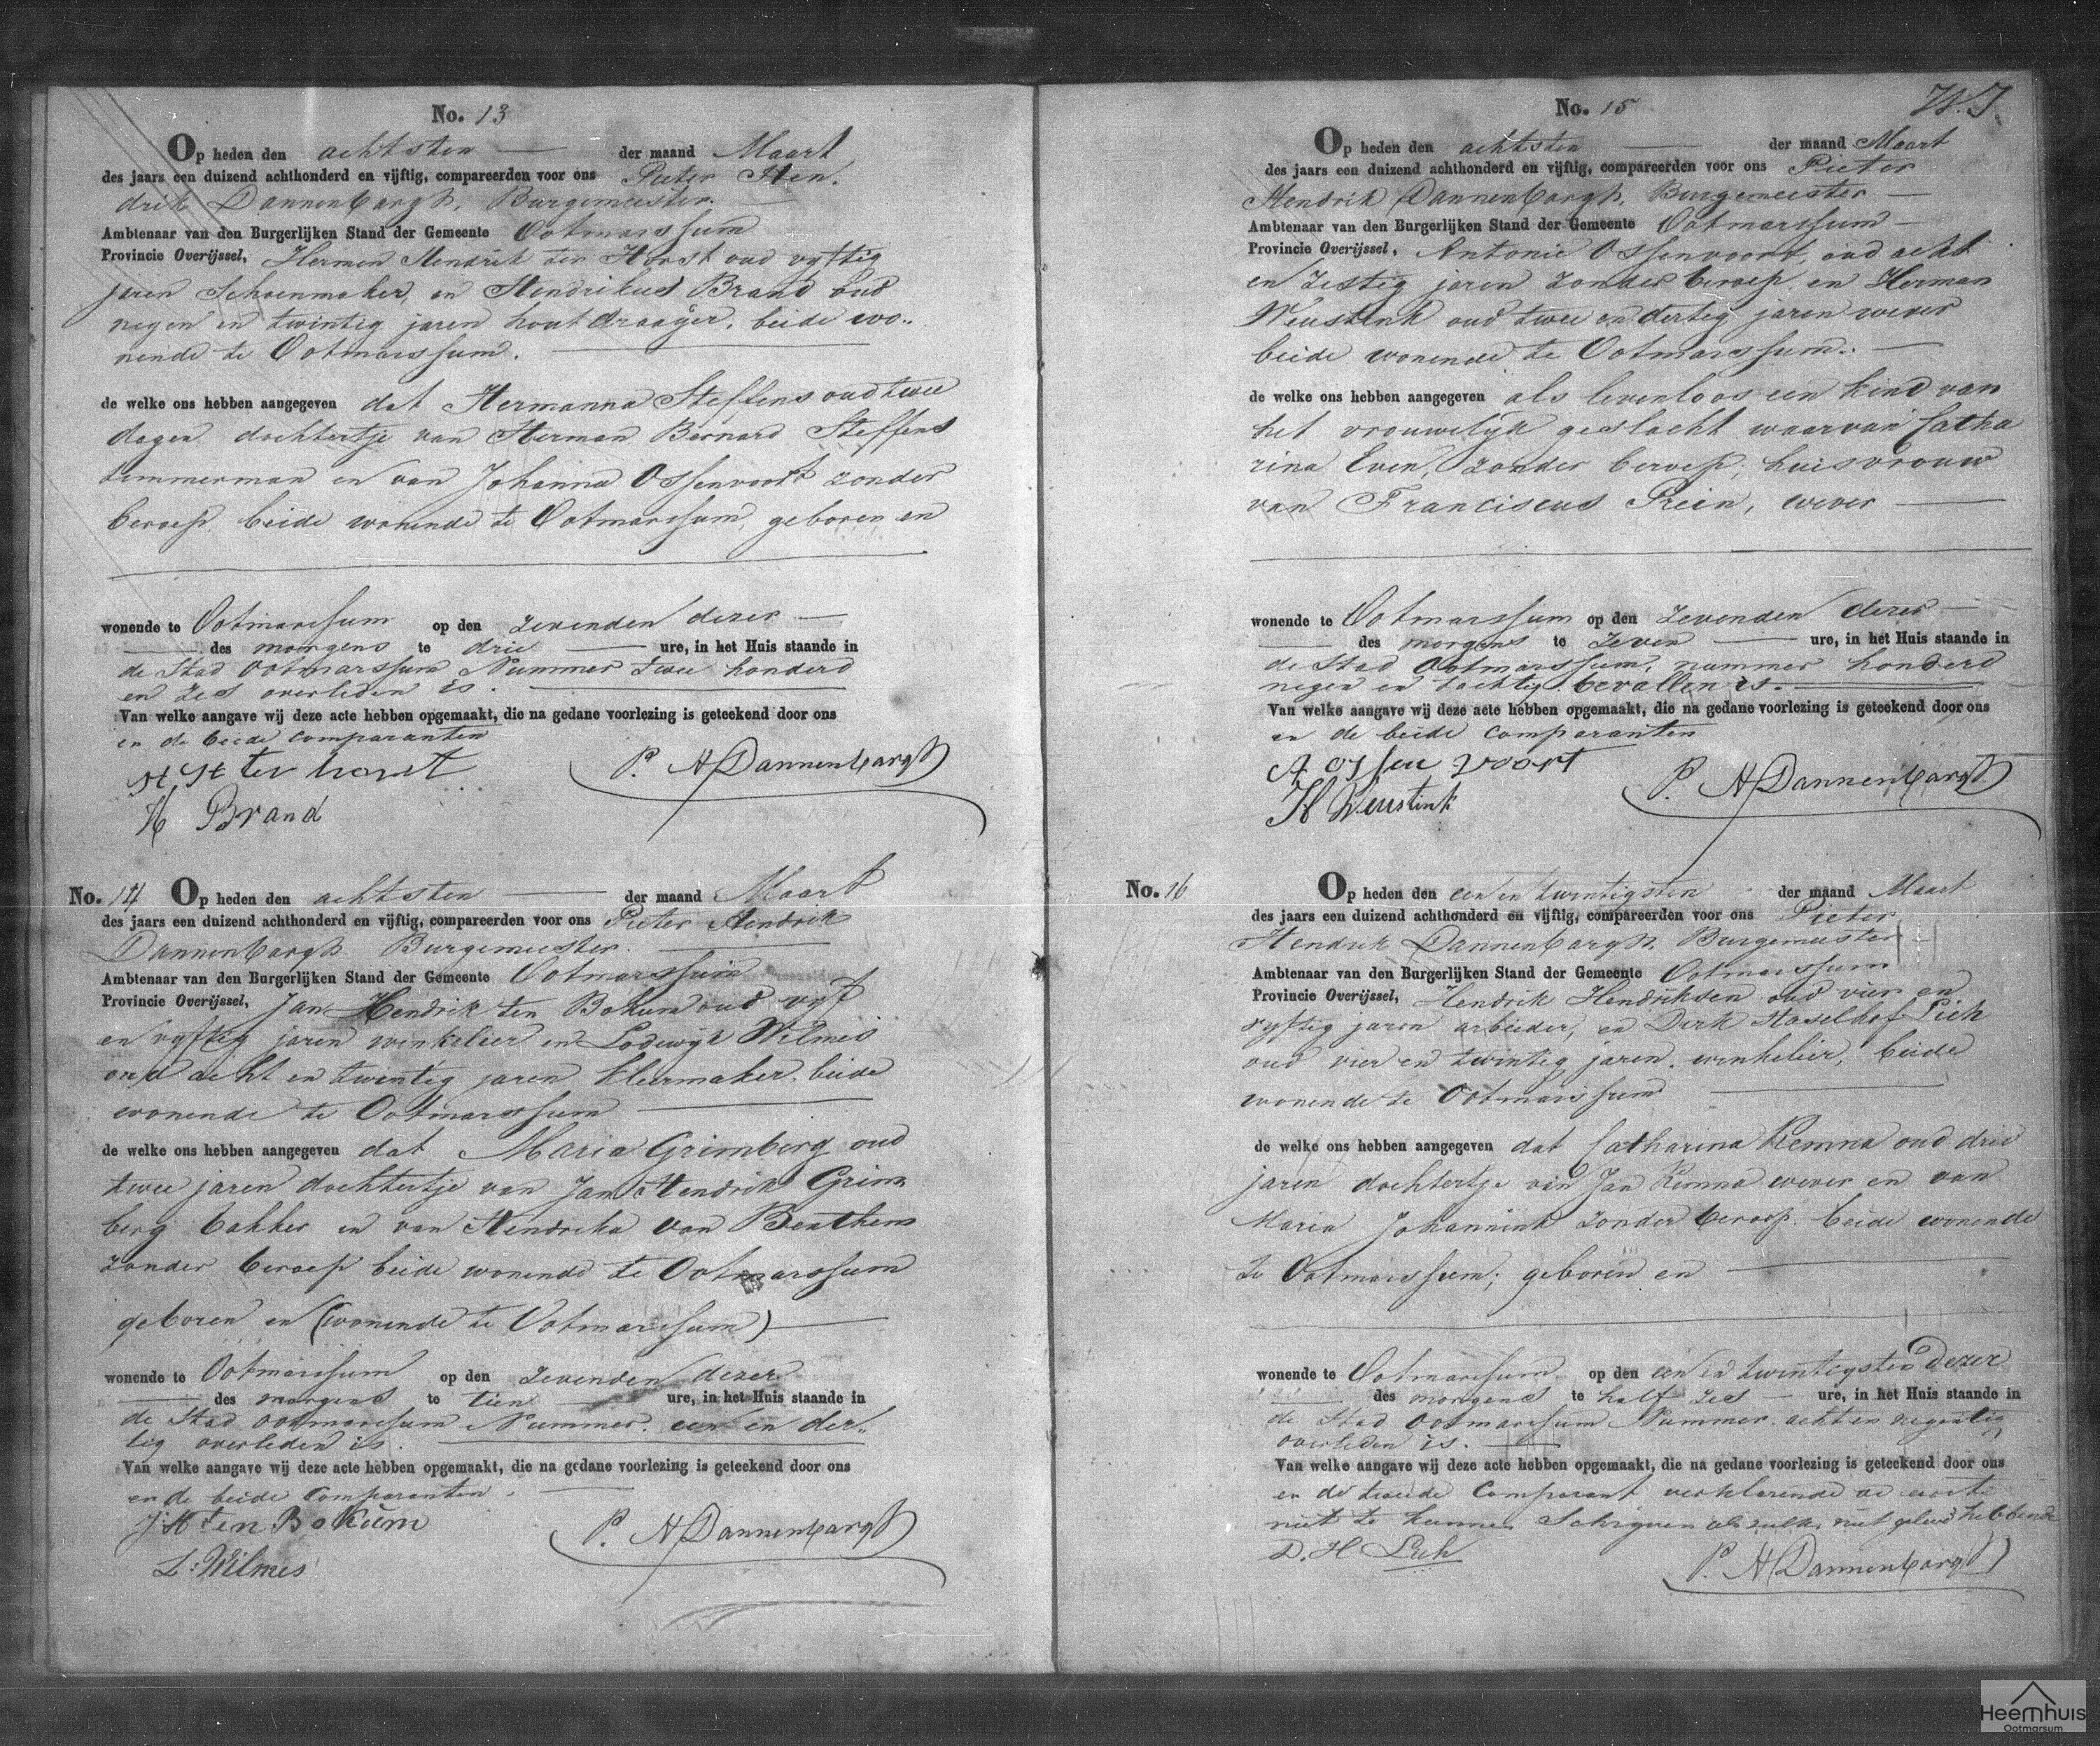 No. 13
Op heden den achtsten der maand Maart
des jaars een duizend achthonderd en vijftig, compareerden voor ons Pieter Hen,
drik Dannenbargh, Burgemeester.
Ambtenaar van den Burgerlijken Stand der Gemeente Ootmarssum
Provincie Overijssel, Hermen Hendrik ter Horst oud vyftig
jaren Schoenmaker, en Hendrikus Brand oud
negen en twintig jaren houtdraayer, beide wo„
nende te Ootmarssum.
de welke ons hebben aangegeven dat Hermanna Steffens oud twee
dagen dochtertje van Herman Bernard Steffens
temmerman en van Johanna Ossenvoort zonder
beroep beide wonende te Ootmarssum, geboren en
wonende te Ootmarssum op den zevenden dezer
des morgens te drie ure, in het Huis staande in
de Stad Ootmarssum Nummer twee honderd
en zes overleden is.
Van welke aangave wij deze acte hebben opgemaakt, die na gedane voorlezing is geteekend door ons
en de beide comparanten
H H ter horst P. H Dannenbargh
H Brand
No. 14 Op heden den achtsten der maand Maart
des jaars een duizend achthonderd en vijftig, compareerden voor ons Pieter Hendrik
Dannenbargh Burgemeester.
Ambtenaar van den Burgerlijken Stand der Gemeente Ootmarssum
Provincie Overijssel, Jan Hendrik ten Bokum oud vyf
en vyftig jaren winkelier en Lodewyk Wilmes
oud acht en twintig jaren kleermaker beide
wonende te Ootmarssum
de welke ons hebben aangegeven dat Maria Grimberg oud
twee jaren dochtertje van Jan Hendrik Grim
berg bakker en van Hendrika van Benthem
zonder beroep beide wonende te Ootmarssum
geboren en (wonende te Ootmarssum)
wonende te Ootmarssum op den zevenden dezer
des morgens te tien ure, in het Huis staande in
de Stad Ootmarssum Nummer een en der„
tig overleden is.
Van welke aangave wij deze acte hebben opgemaakt, die na gedane voorlezing is geteekend door ons
en de beide Comparanten.
J: H ten Bokum P. H Dannenbargh
L: Wilmes
No. 15
Op heden den achtsten der maand Maart
des jaars een duizend achthonderd en vijftig, compareerden voor ons Pieter
Hendrik Dannenbargh, Burgemeester
Ambtenaar van den Burgerlijken Stand der Gemeente Ootmarssum
Provincie Overijssel, Antonie Ossenvoort, oud acht
en zestig jaren zonder beroep, en Herman
Weustink oud twee en dertig jaren wever
beide wonende te Ootmarssum.
de welke ons hebben aangegeven als levenloos een kind van
het vrouwelyk geslacht waarvan Catha
rina Even, zonder beroep, huisvrouw
van Franciscus Prein, wever
wonende te Ootmarssum op den zevenden dezer
des morgens te zeven ure, in het Huis staande in
de Stad Ootmarssum, nummer honderd
negen en tachtig bevallen is.
Van welke aangave wij deze acte hebben opgemaakt, die na gedane voorlezing is geteekend door ons
en de beide comparanten
A Ossen voort P. H Dannenbargh
H Weustink
No. 16 Op heden den een en twintigsten der maand Maart
des jaars een duizend achthonderd en vijftig, compareerden voor ons Pieter
Hendrik Dannenbargh, Burgemeester
Ambtenaar van den Burgerlijken Stand der Gemeente Ootmarssum
Provincie Overijssel, Hendrik Hendriksen oud vier en
vyftig jaren arbeider, en Derk Haselhof
oud vier en twintig jaren winkelier, beide
wonende te Ootmarssum
de welke ons hebben aangegeven dat Catharina Kemna oud drie
jaren dochtertje van Jan Kemna wever en van
Maria Johannink zonder beroep. beide wonende
te Ootmarssum; geboren en
wonende te Ootmarssum op den een en twintigsten dezer
des morgens te half zes ure, in het Huis staande in
de Stad Ootmarssum Nummer acht en negentig
overleden is.
Van welke aangave wij deze acte hebben opgemaakt, die na gedane voorlezing is geteekend door ons
en de tweede Comparant verklarende de eerste
niet te kunnen Schryven als zulks niet geleerd hebbende
D. H P. H Dannenbargh
Heemhuis
Ootmarsum